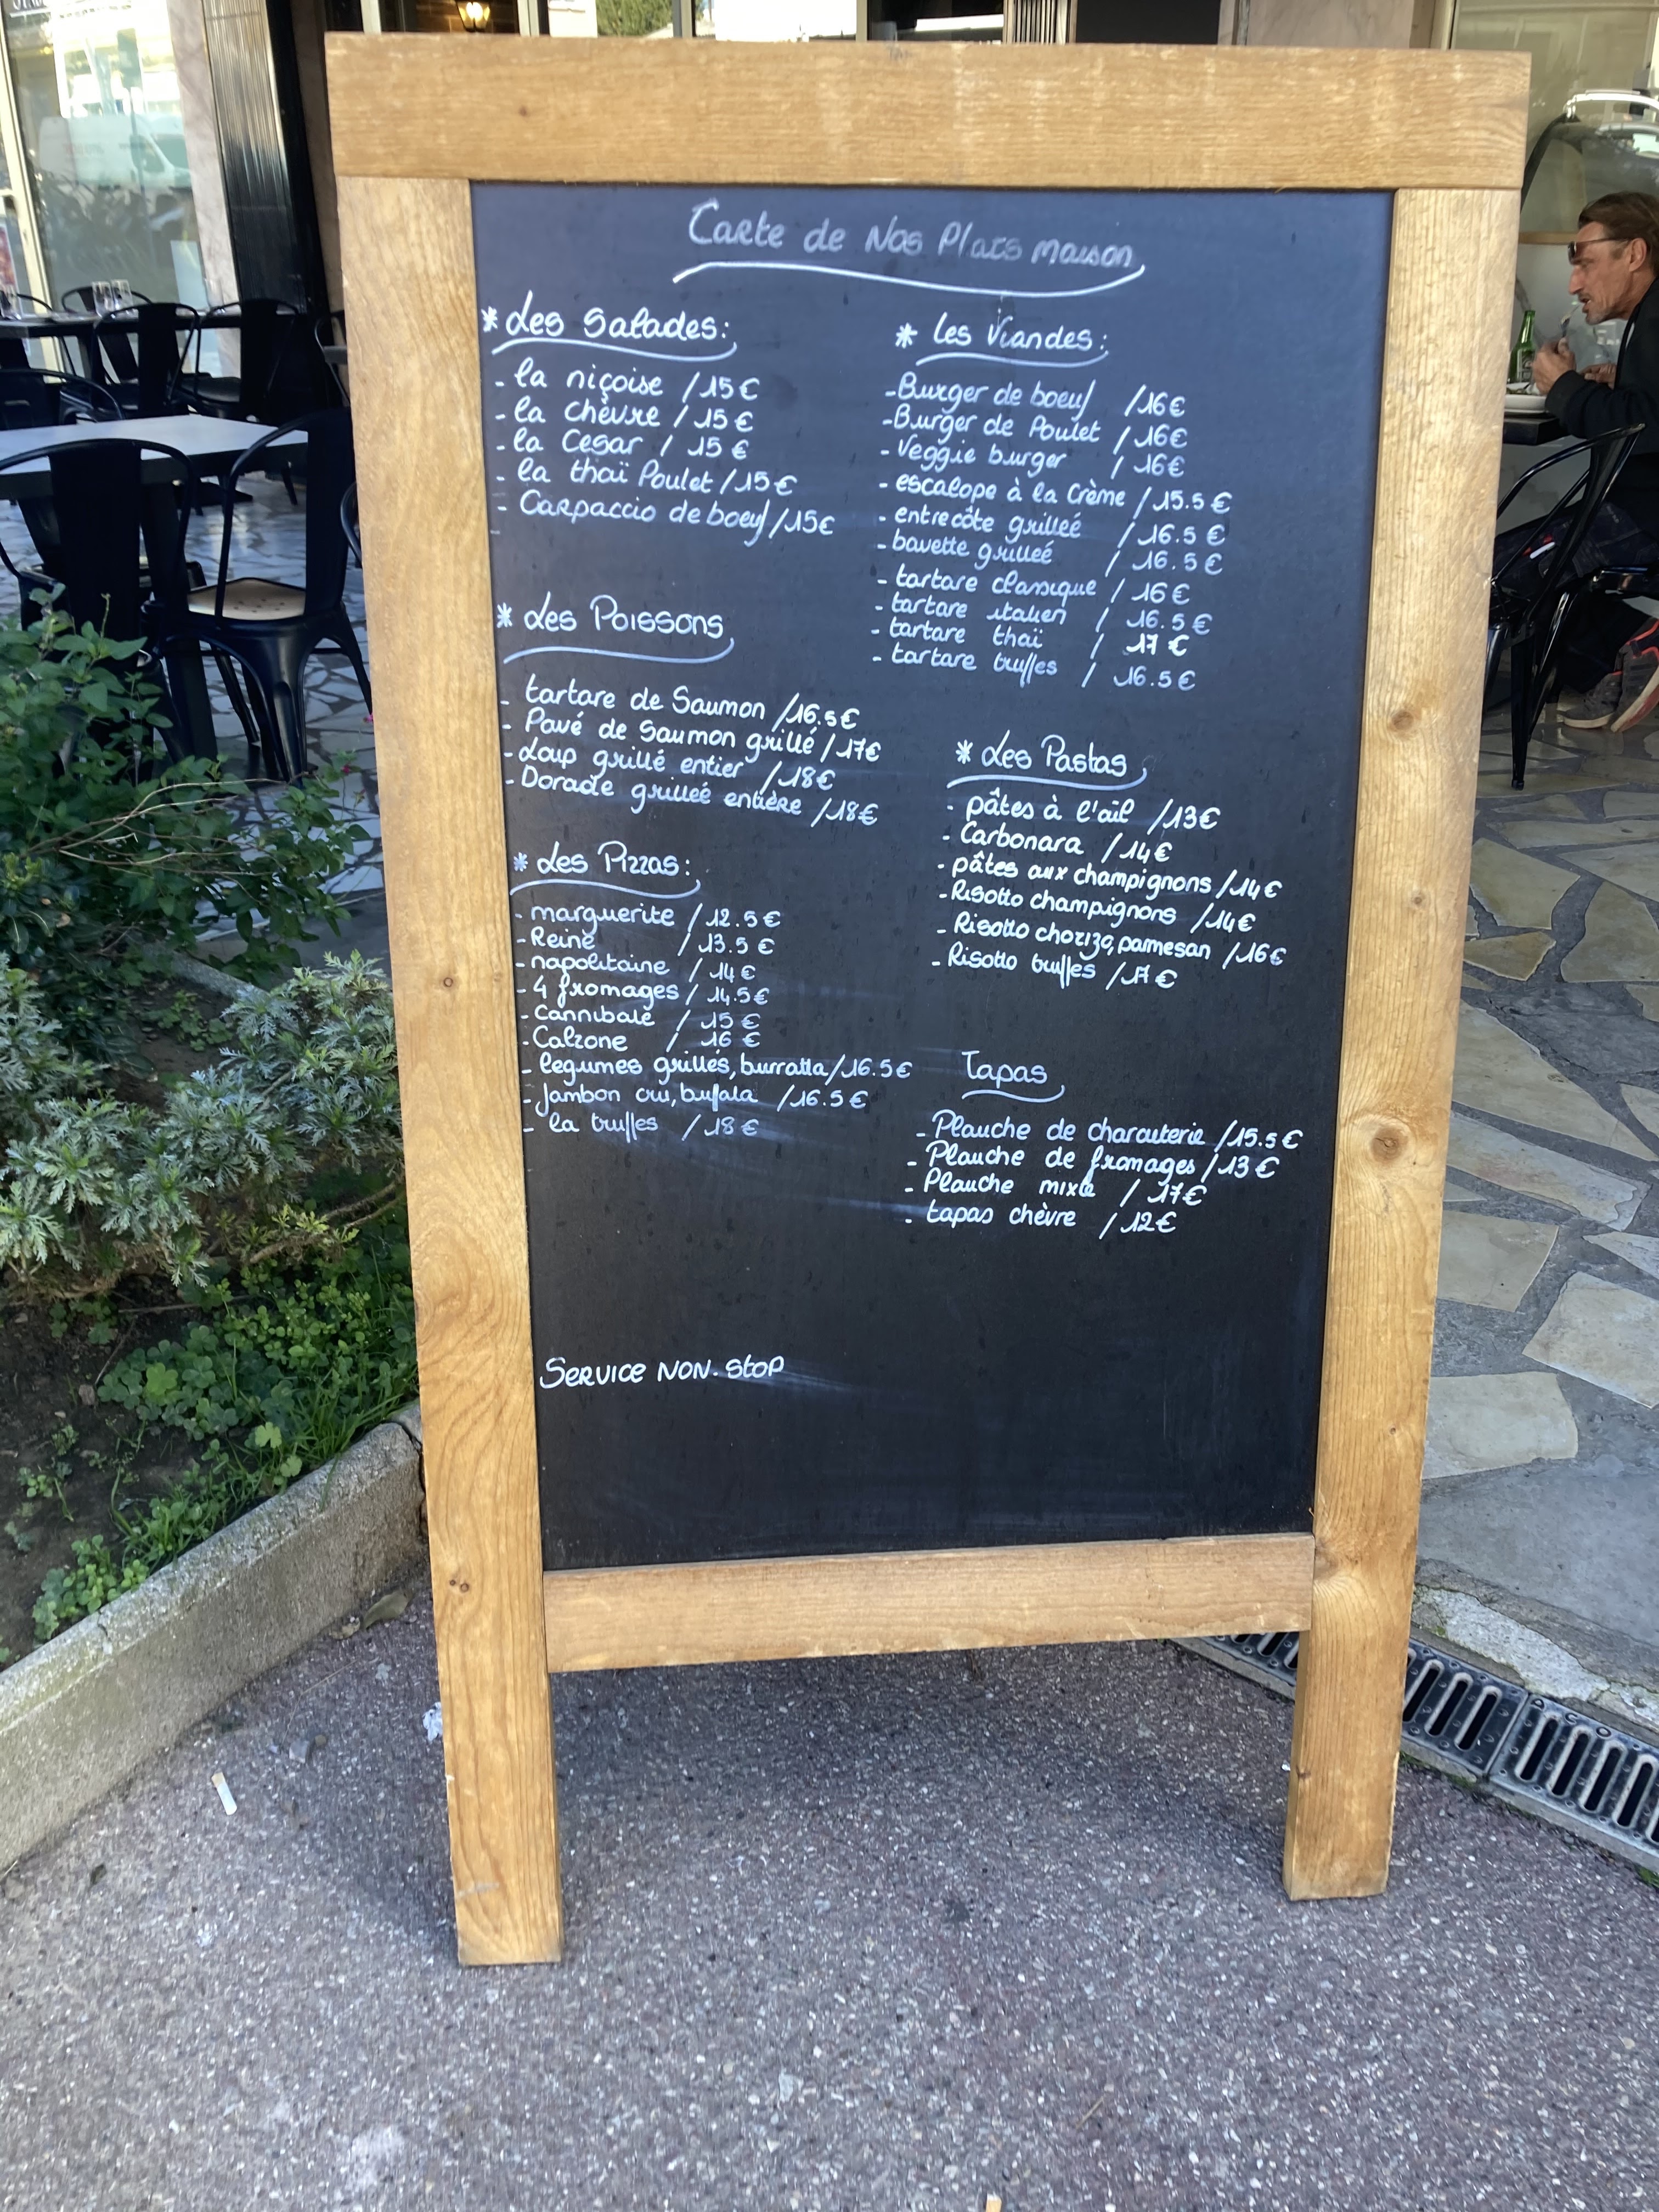 Carte de Nos Plats maison
* Les Salades:
- la niçoise /15€
- la chèvre /15€
- la Cesar / 15€
- la thaï Poulet /15€
- Carpaccio de boeuf /15€
* Les Poissons
- tartare de Saumon /16.5€
- Pavé de Saumon grillé /17€
- Loup grillé entier /18€
- Dorade grilleé entière /18€
* Les Pizzas:
- marguerite / 12.5€
- Reine / 13.5 €
- napolitaine / 14€
- 4 fromages / 14.5€
- Cannibale / 15 €
- Calzone / 16 €
- legumes grillés, burratta /16.5€
- Jambon cru, bufala /16.5€
- la truffes /18€
SERVICE NON.STOP
* Les Viandes:
- Burger de boeuf /16€
- Burger de Poulet /16€
- Veggie burger /16€
- escalope à la Crème /15.5€
- entrecôte grilleé /16.5€
- bavette grilleé / 16.5€
- tartare classique / 16€
- tartare italien / 16.5€
- tartare thaï / 17€
- tartare truffes / 16.5€
* Les Pastas
- pâtes à l'ail /13€
- Carbonara /14€
- pâtes aux champignons /14€
- Risotto champignons /14€
- Risotto chorizo, parmesan /16€
- Risotto truffes /17€
Tapas
- Plauche de charcuterie /15.5€
- Plauche de fromages /13€
- Plauche mixte / 17€
- tapas chèvre /12€